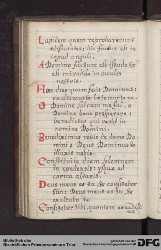 Lapidem quem reprobaverunt
ædificantes: hic factus est in
caput anguli.
A Domino factum est istud: &
est mirabile in oculis
nostris.
Hæc dies quam fecit Dominus:
exultemus & lætemur in ea.
O Domine salvum me fac, o
Domine bene prosperare:
benedictus qui venit in
nomine Domini.
Benediximus vobis de domo Do
mini: Deus Dominus &
illuxit nobis.
Constituite diem solemnem
in condensis: usque ad
cornu altaris.
Deus meus es tu, & confitebor
tibi: Deus meus es tu, &
exaltabo te.
Confitebor tibi, quoniam exaudisti
Bibliothek des
Bischöflichen Priesterseminars Trier
DFG